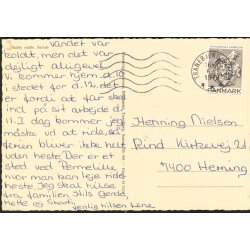 Vandet var
koldt, men det var
dejligt alligevel
Vi kommer hjem d. 10
istedet for d. 12. det
er fordi at far skal
ind på sit arbejde d.
11. I dag kommer jeg
måske ud at ride, så
feren bliver ikke helt
uden heste. Der er et
sted ved Pernelille
hvor man kan leje
heste. Jeg skal hilse
fra familien Hils Gerda,
Mette og
venlig hilsen Lene.
Henning Nielsen
Rind Kirkevej 21
7400 Herning
DANMARK